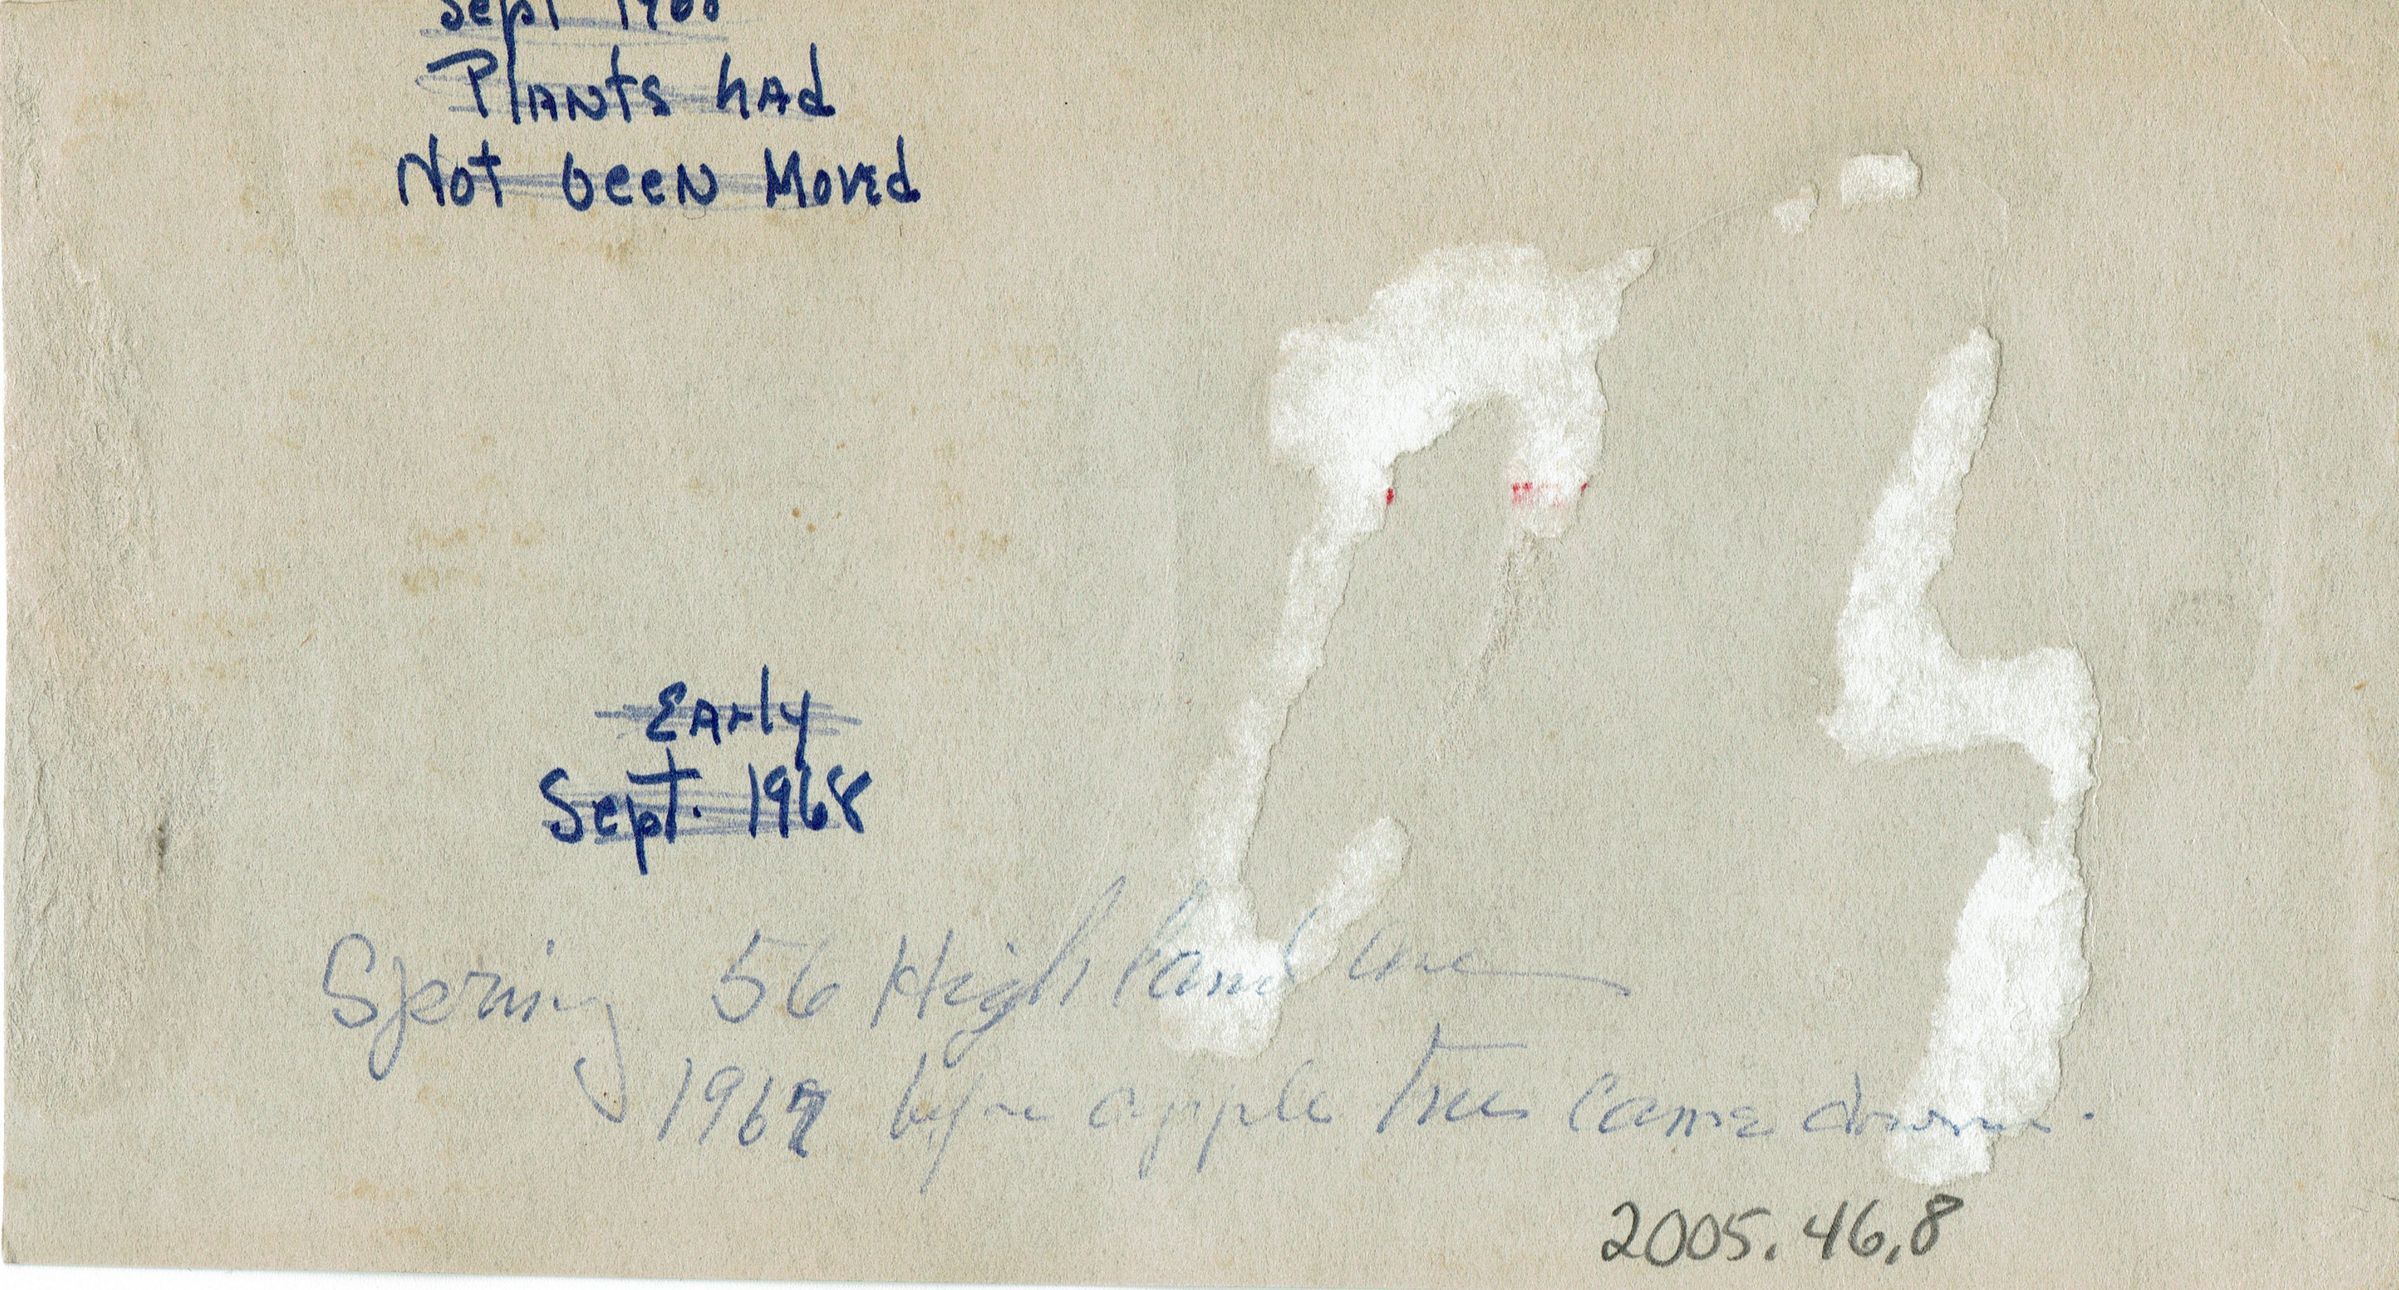 Sept 1968
Plants had
Not been Moved
Early
Sept. 1968
Spring 56 Highland Ave
1967 before apple trees came down.
2005.46.8